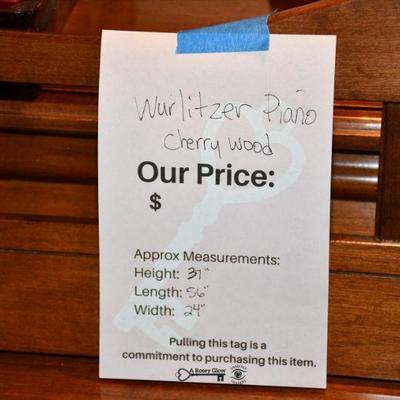 Wurlitzer Piano
Cherry Wood
Our Price:
$
Approx Measurements:
Height: 37"
Length: 56"
Width: 24"
Pulling this tag is a
commitment to purchasing this item.
A Rosey Glow